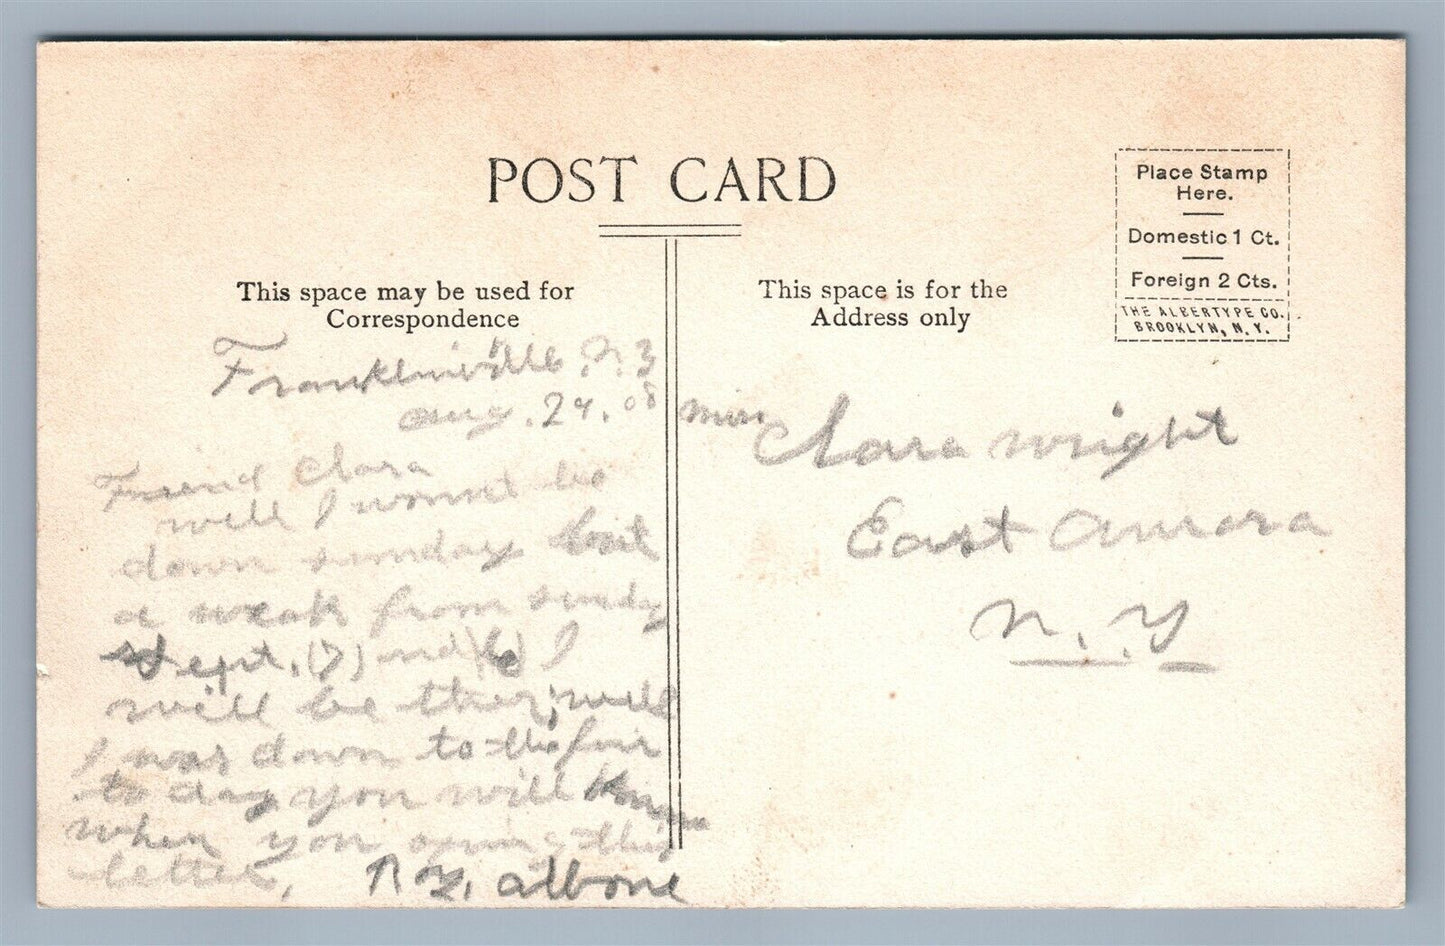 POST CARD
Place Stamp
Here.
Domestic 1 Ct.
Foreign 2 Cts.
THE ALBERTYPE CO.,
BROOKLYN, N. Y.
This space may be used for
Correspondence
This space is for the
Address only
Franklinville. N.Y
aug. 29. 08
Friend Clara
well I wont be
down sunday but
a weak from sunday
sept. (7) and (6) I
will be ther; well
I was down to the fair
to day you will know
when you oping this
letter. albone
miss Clara wright
East aurora
N. Y